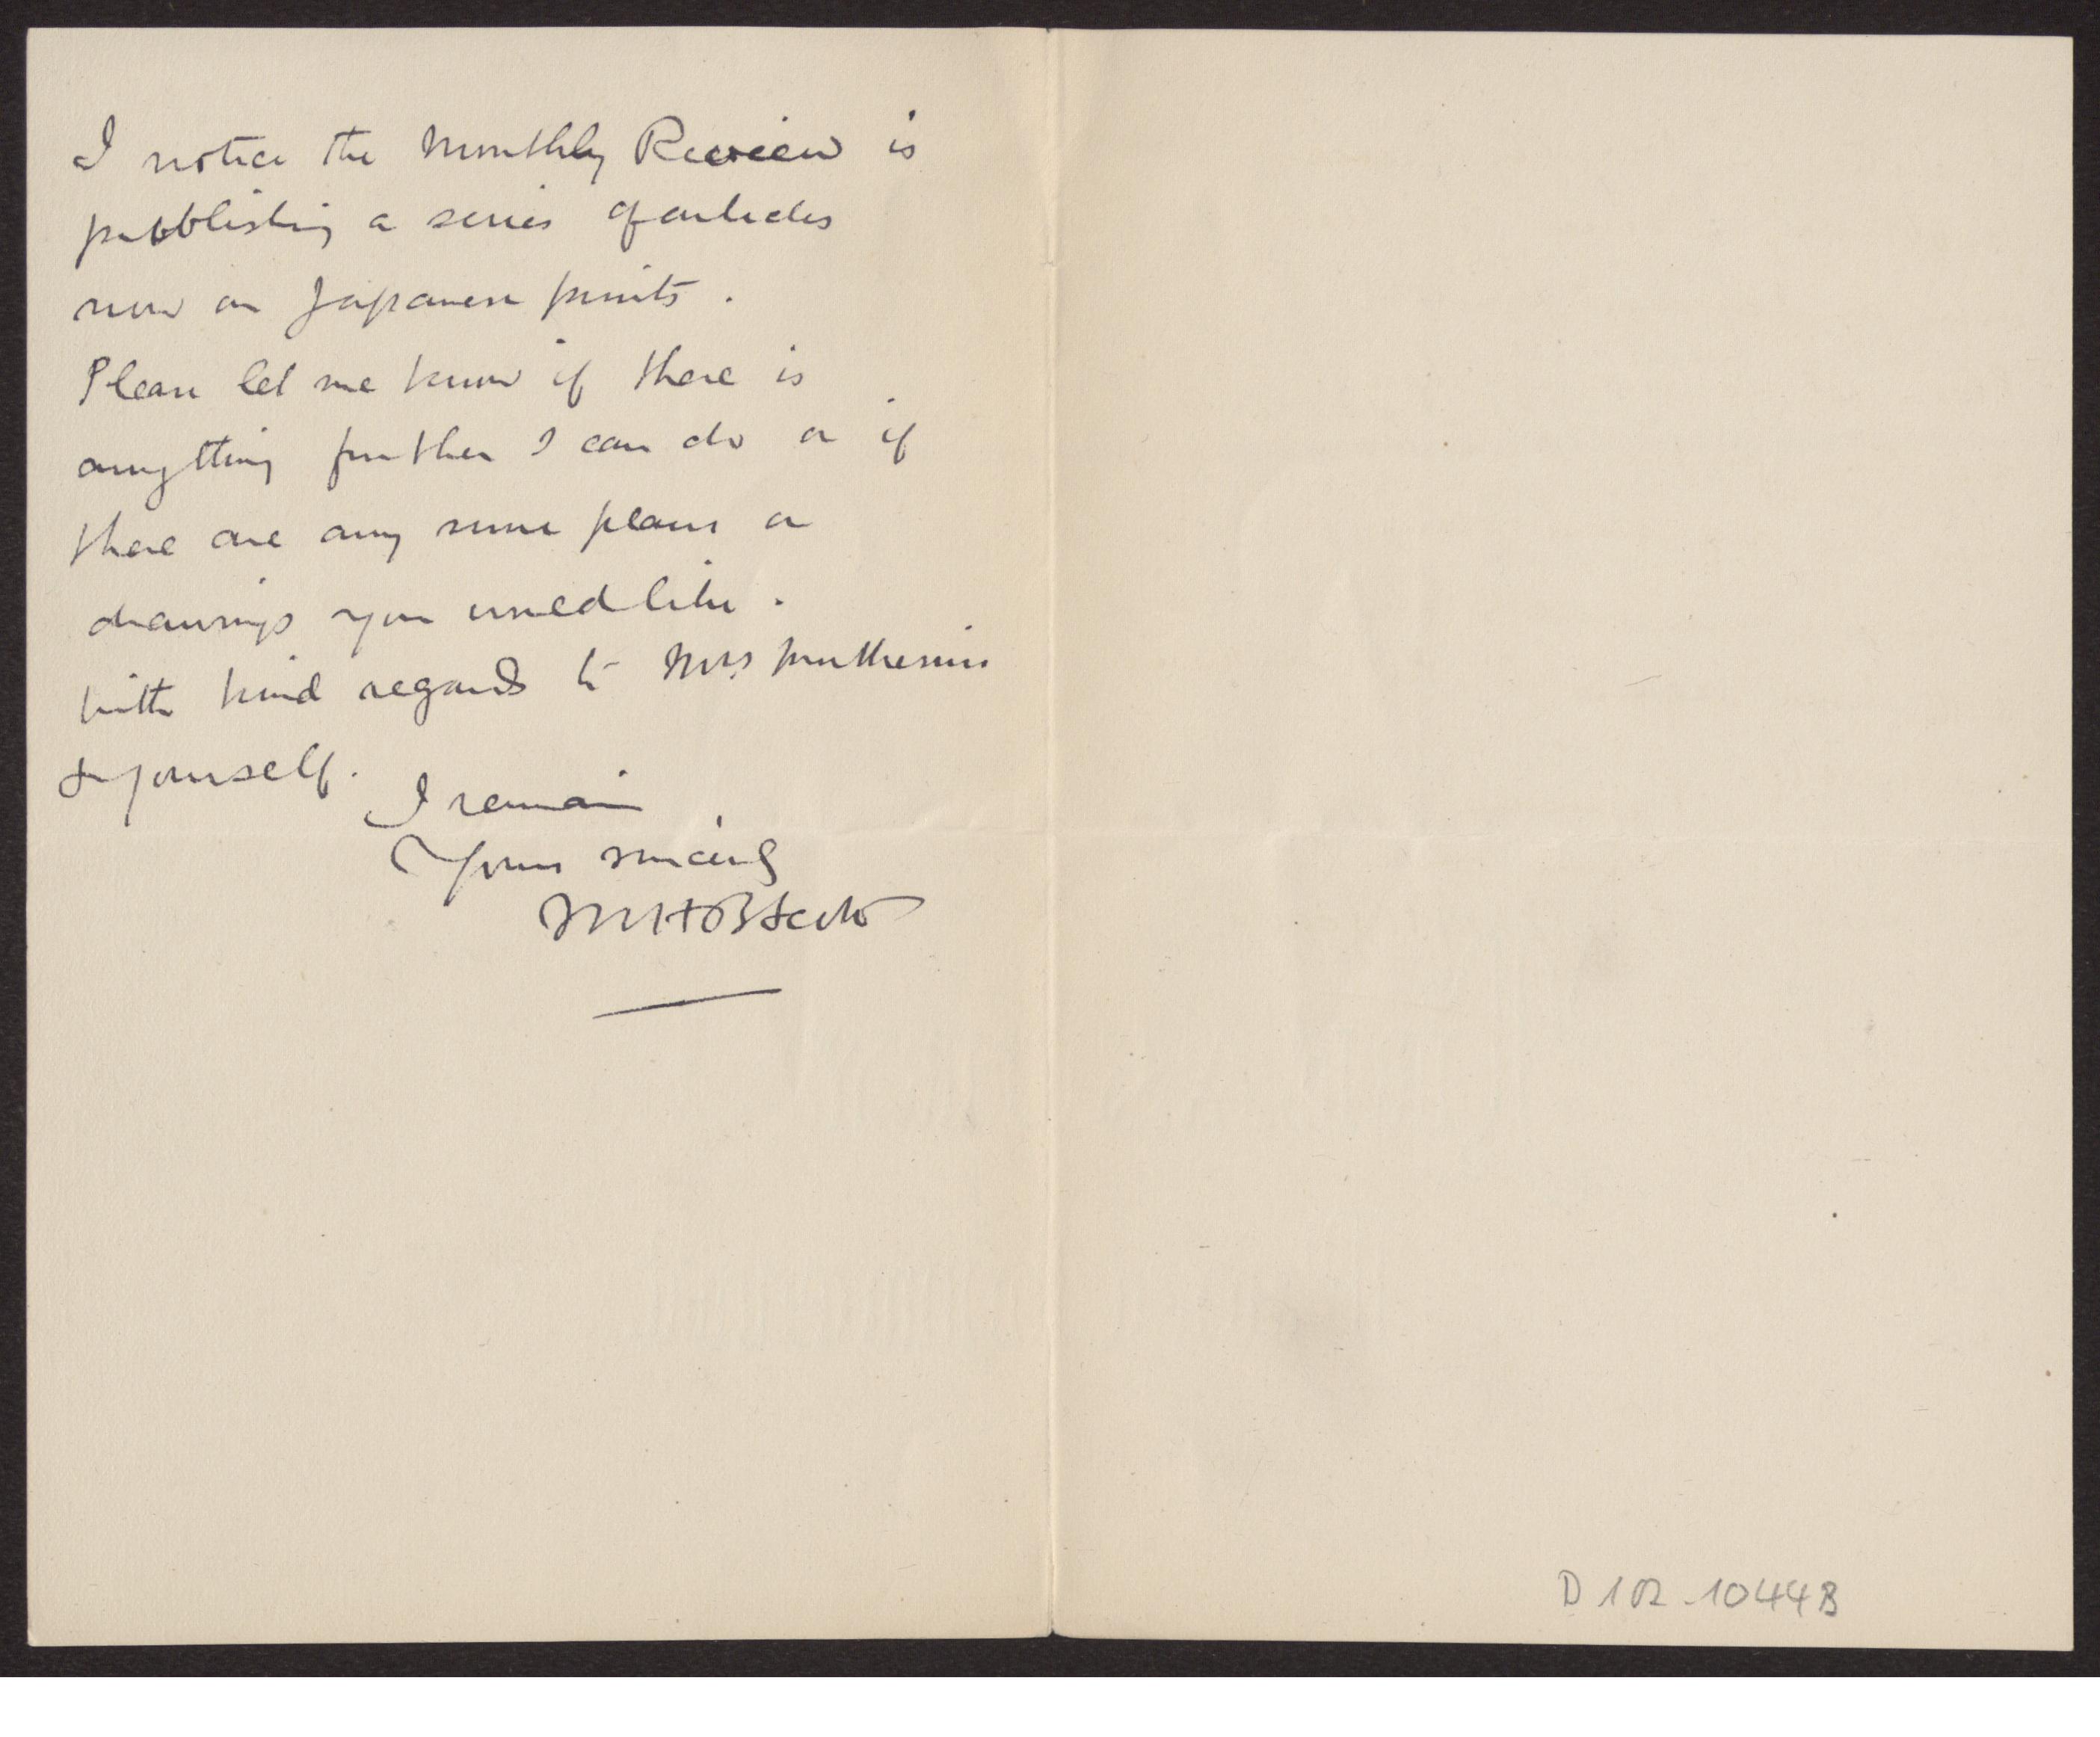 I notice the Monthly Review is
publishing a series of articles
now on Japanese prints.
Please let me know if there is
anything further I can do or if
there are any more plans or
drawings you would like.
With kind regards to Mrs Muthesius
& yourself.
I remain
Yours sincerely
M H B Scott
D 102-10448